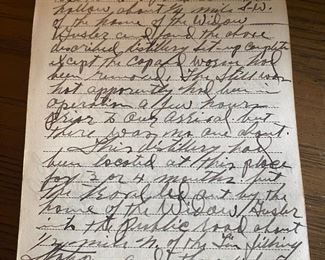 hollow about ½ mile S.W.
of the home of the Widow
Husler and found the above
described distillery set up complete
except the Copper worm had
been removed. The Still was
hot apparently had been in
operation a few hours
prior to our arrival but
there was no one about.
This distillery had
been located at this place
for 3 or 4 months but
the road led out by the
home of the Widow Husler
to the Public road about
mile N. of the